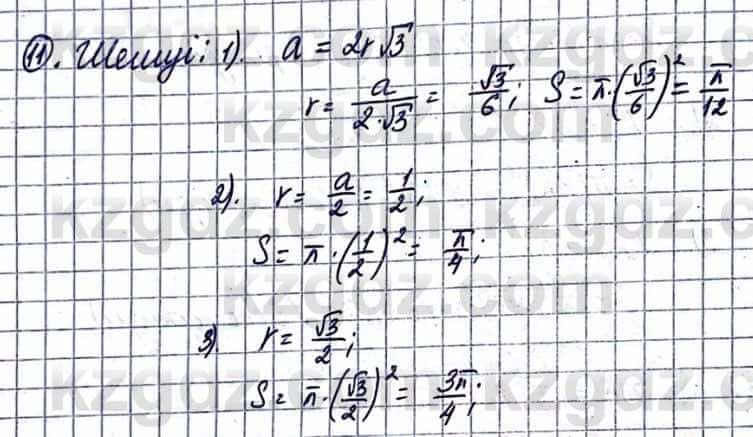 11. Шешуі: 1). a = 2r√3
r = a/(2·√3) = √3/6; S = π·(√3/6)² = π/12
2). r = a/2 = 1/2;
S = π·(1/2)² = π/4;
3). r = √3/2;
S = π·(√3/2)² = 3π/4;
kzgdz.com